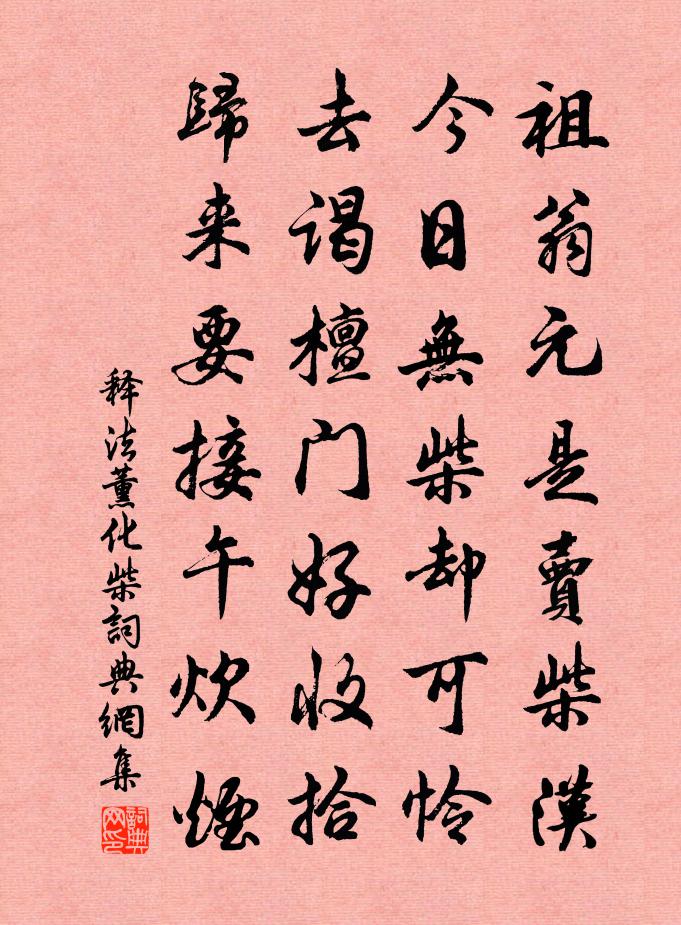 祖翁元是賣柴漢
今日無柴却可憐
去謁檀门好收拾
歸来要接午炊煙
释法薰化柴詞典網集
詞典网印